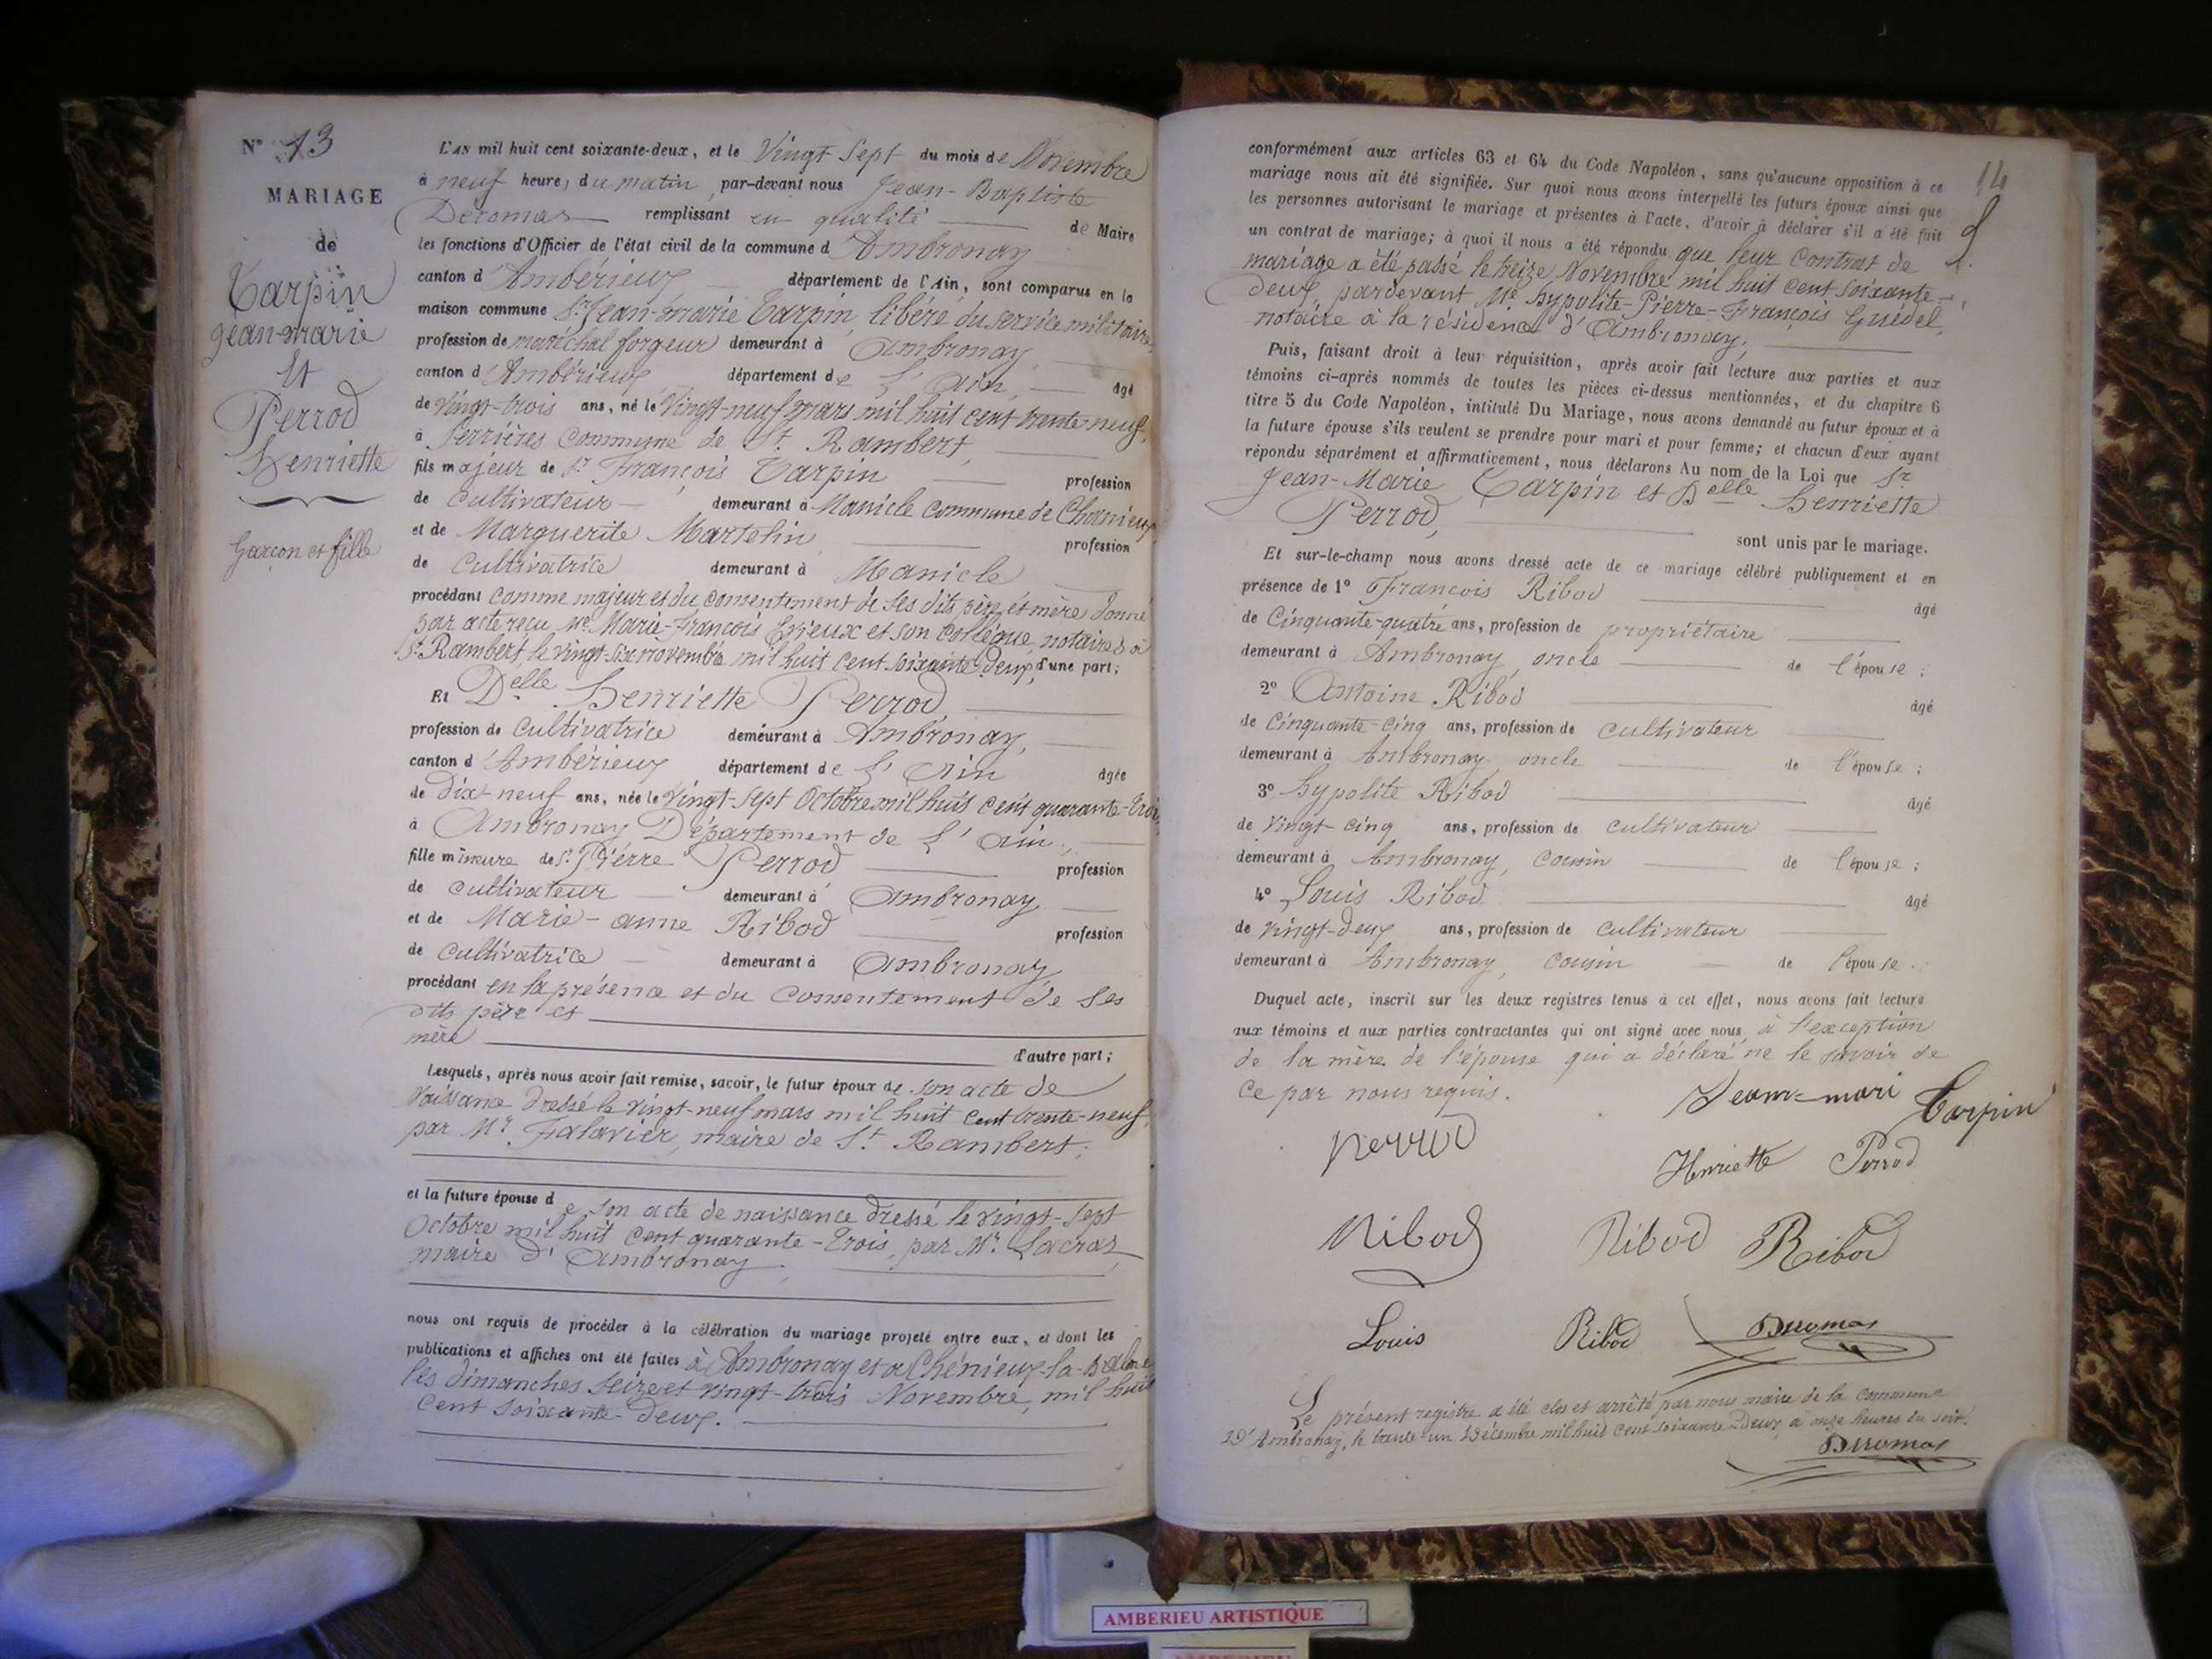 N° 13
MARIAGE
de
Carpin
jean-marie
Et
Perrod
henriette
Garçon et fille
L'AN mil huit cent soixante-deux, et le Vingt Sept du mois de Novembre
à neuf heures du matin, par-devant nous Jean-Baptiste
Déromas remplissant en qualité de Maire
les fonctions d'Officier de l'état civil de la commune d'Ambronay
canton d'Ambérieux département de l'Ain, sont comparus en la
maison commune Sr Jean-marie Carpin, libéré du service militaire,
profession de maréchal forgeur demeurant à Ambronay,
canton d'Ambérieux département de L'Ain, âgé
de Vingt-trois ans, né le Vingt-neuf mars mil huit cent trente neuf,
à Serrières Commune de St. Rambert,
fils majeur de Sr François Carpin profession
de Cultivateur demeurant à Manicle commune de Chenieux
et de Marguerite Martelin profession
de Cultivatrice demeurant à Manicle
procédant comme majeur et du consentement de ses dits père et mère donné
par acte reçu Me Marie-François et son collègue, notaires à
St. Rambert le vingt-six novembre mil huit cent soixante-deux, d'une part;
Et Delle henriette Perrod
profession de Cultivatrice demeurant à Ambronay,
canton d'Ambérieux département de L'Ain âgée
de Dix neuf ans, née le Vingt-Sept Octobre mil huit cent quarante-trois
à Ambronay Département de L'Ain,
fille mineure de Sr Pierre Perrod profession
de cultivateur demeurant à Ambronay
et de Marie-anne Ribod profession
de cultivatrice demeurant à Ambronay,
procédant en la présence et du Consentement de ses
dits père et
mère d'autre part;
Lesquels, après nous avoir fait remise, savoir, le futur époux de son acte de
Naissance dressé le vingt-neuf mars mil huit cent trente-neuf,
par Mr Falavier, maire de St. Rambert;
et la future épouse de son acte de naissance dressé le vingt-sept
Octobre mil huit cent quarante-trois, par Mr. Lacraz
maire d'Ambronay
nous ont requis de procéder à la célébration du mariage projeté entre eux, et dont les
publications et affiches ont été faites à Ambronay et à Chénieux-la-Balme
les dimanches seize et vingt-trois Novembre, mil huit
cent soixante-deux.
14
conformément aux articles 63 et 64 du Code Napoléon, sans qu'aucune opposition à ce
mariage nous ait été signifiée. Sur quoi nous avons interpellé les futurs époux ainsi que
les personnes autorisant le mariage et présentes à l'acte, d'avoir à déclarer s'il a été fait
un contrat de mariage; à quoi il nous a été répondu que leur Contrat de
mariage a été passé le treize Novembre mil huit cent soixante-
deux, pardevant Me hypolite-Pierre-François Guidel,
notaire à la résidence d'Ambronay.
Puis, faisant droit à leur réquisition, après avoir fait lecture aux parties et aux
témoins ci-après nommés de toutes les pièces ci-dessus mentionnées, et du chapitre 6
titre 5 du Code Napoléon, intitulé Du Mariage, nous avons demandé au futur époux et à
la future épouse s'ils veulent se prendre pour mari et pour femme; et chacun d'eux ayant
répondu séparément et affirmativement, nous déclarons Au nom de la Loi que Sr
Jean-Marie Carpin et Delle henriette
Perrod, sont unis par le mariage.
Et sur-le-champ nous avons dressé acte de ce mariage célébré publiquement et en
présence de 1° François Ribod âgé
de Cinquante-quatre ans, profession de propriétaire
demeurant à Ambronay, oncle de l'épouse;
2° Antoine Ribod âgé
de Cinquante-cinq ans, profession de cultivateur
demeurant à Ambronay oncle de l'épouse;
3° hypolite Ribod âgé
de Vingt-cinq ans, profession de cultivateur
demeurant à Ambronay, cousin de l'épouse;
4° Louis Ribod âgé
de vingt-deux ans, profession de cultivateur
demeurant à Ambronay, cousin de l'épouse.
Duquel acte, inscrit sur les deux registres tenus à cet effet, nous avons fait lecture
aux témoins et aux parties contractantes qui ont signé avec nous, à l'exception
de la mère de l'épouse qui a déclaré ne le savoir de
ce par nous requis.
Jean-mari Carpin
perrod
Henriette Perrod
Ribod Ribod Ribod
Louis Ribod Deromas
Le présent registre a été clos et arrêté par nous maire de la commune
D'Ambronay, le trente-un Décembre mil huit cent soixante Deux, à onze heures du soir.
Deromas
AMBERIEU ARTISTIQUE
AMBERIEU